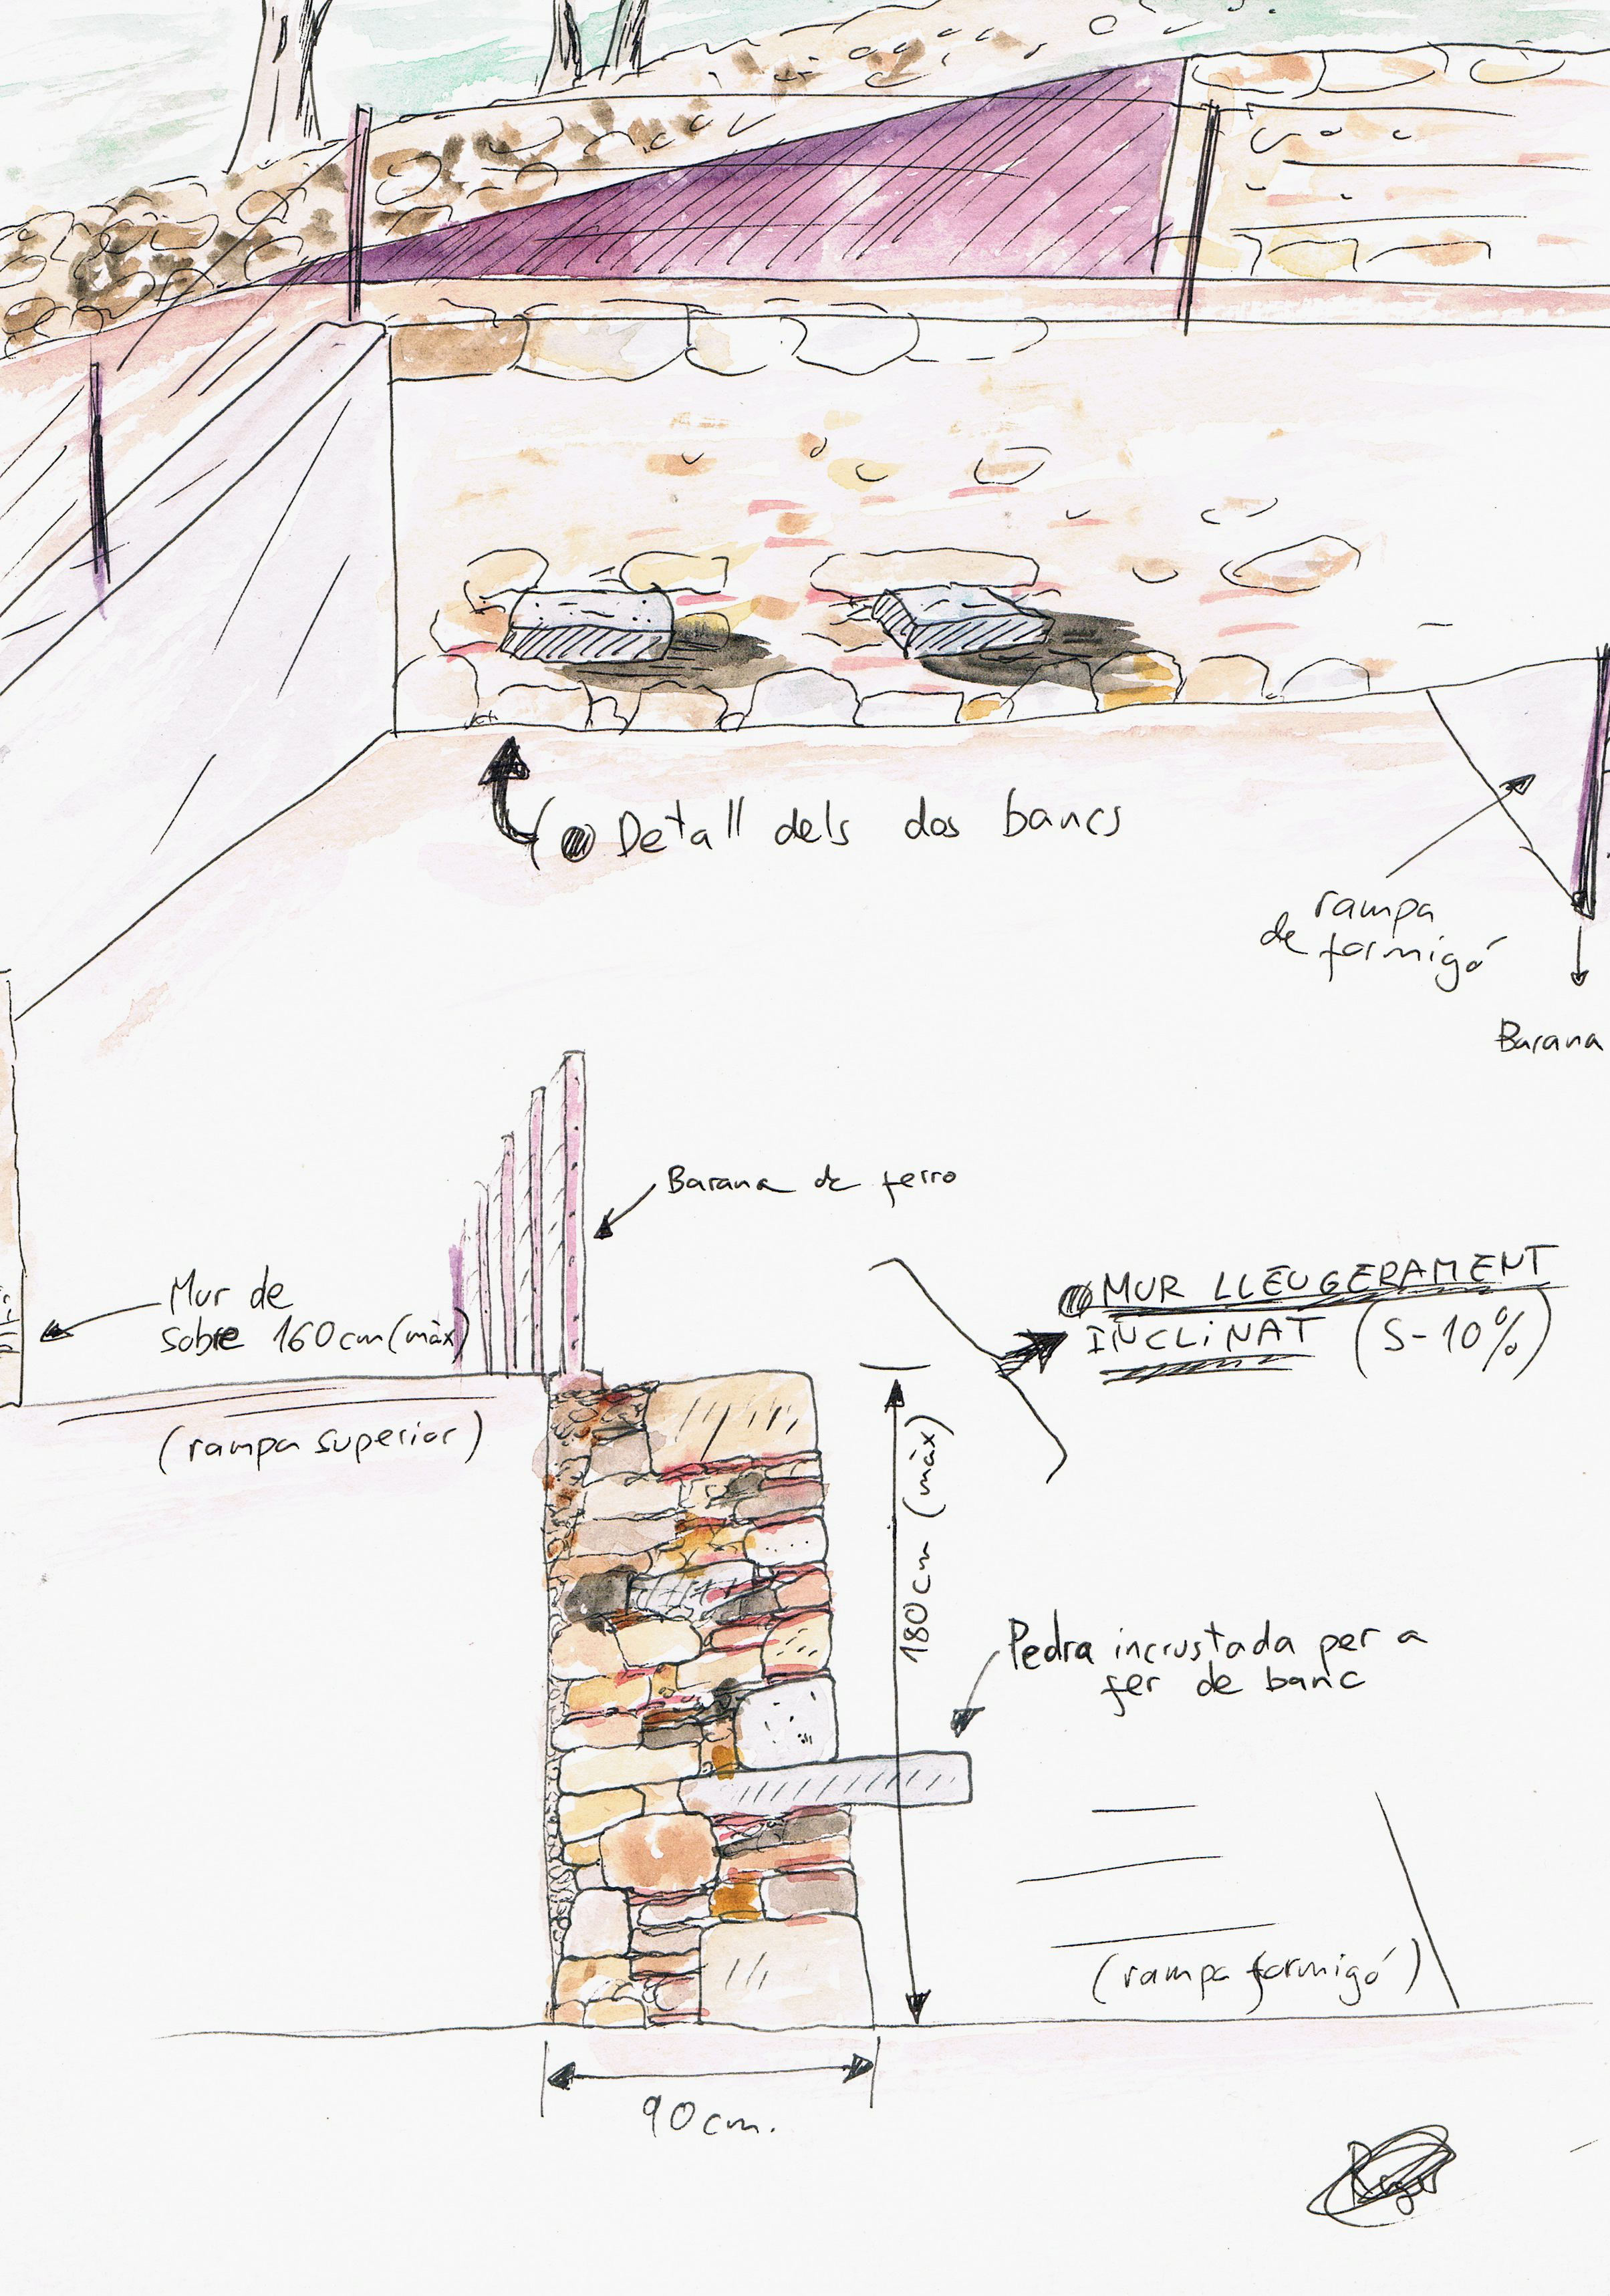 Detall dels dos bancs
rampa
de formigó
Barana
Barana de ferro
Mur de
sobre 160cm (màx)
MUR LLEUGERAMENT
INCLINAT (5-10%)
(rampa superior)
180cm (màx)
Pedra incrustada per a
fer de banc
(rampa formigó)
90cm.